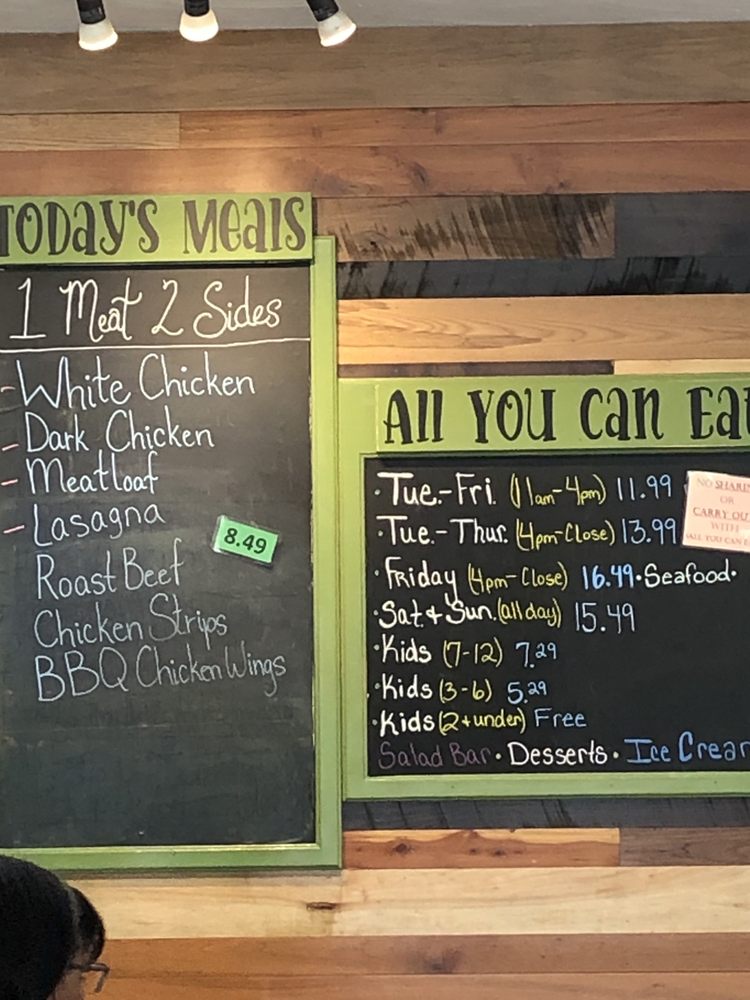 TODAY'S MEALS
1 Meat 2 Sides
- White Chicken
- Dark Chicken
- Meatloaf
- Lasagna
8.49
Roast Beef
Chicken Strips
BBQ Chicken Wings
All YOU Can Eat
·Tue.-Fri. (11am-4pm) 11.99
·Tue.-Thur. (4pm-Close) 13.99
·Friday (4pm-Close) 16.49·Seafood·
·Sat+Sun.(all day) 15.49
·Kids (7-12) 7.29
·Kids (3-6) 5.29
·Kids (2+under) Free
Salad Bar · Desserts · Ice Cream
NO SHARI
OR
CARRY OU
WITH
ALL YOU CAN E